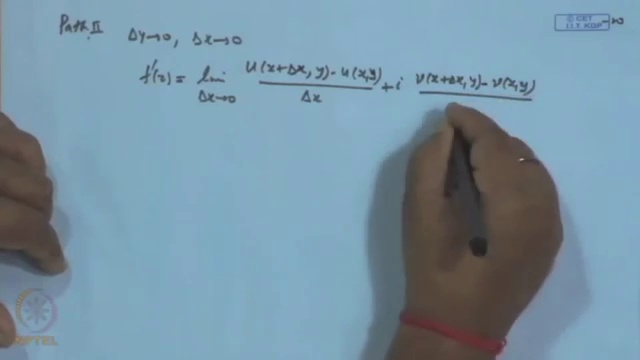 Path II Δy→0, Δx→0
f'(z) = lim Δx→0 u(x+Δx, y) - u(x,y) / Δx + i v(x+Δx, y) - v(x,y)
© CET
I.I.T. KGP
NPTEL